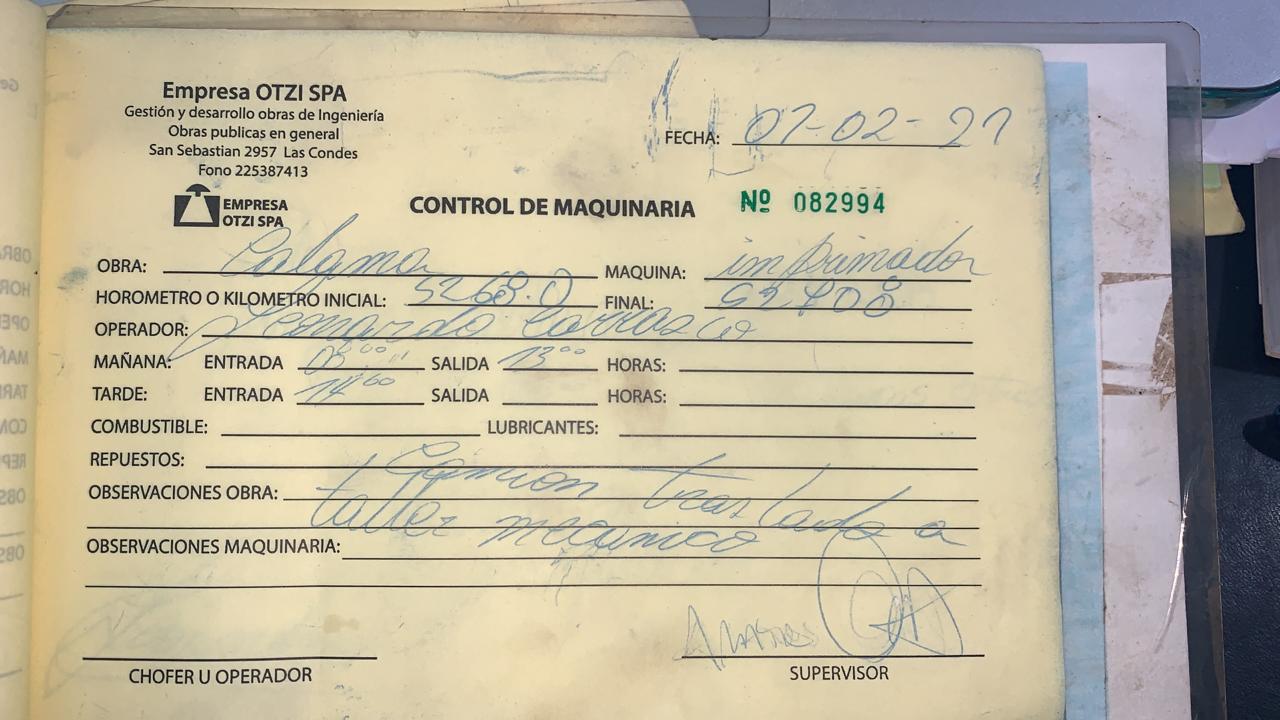 Empresa OTZI SPA
Gestión y desarrollo obras de Ingeniería
Obras publicas en general
San Sebastian 2957 Las Condes
Fono 225387413
EMPRESA
OTZI SPA
FECHA: 07-02-21
CONTROL DE MAQUINARIA Nº 082994
OBRA: Calama MAQUINA: imprimador
HOROMETRO O KILOMETRO INICIAL: 5268.0 FINAL:
OPERADOR: Leonardo Carrasco
MAÑANA: ENTRADA 08:00 SALIDA 13:00 HORAS:
TARDE: ENTRADA 14:00 SALIDA HORAS:
COMBUSTIBLE: LUBRICANTES:
REPUESTOS:
OBSERVACIONES OBRA: Camion traslado a
taller mecanico
OBSERVACIONES MAQUINARIA:
CHOFER U OPERADOR SUPERVISOR